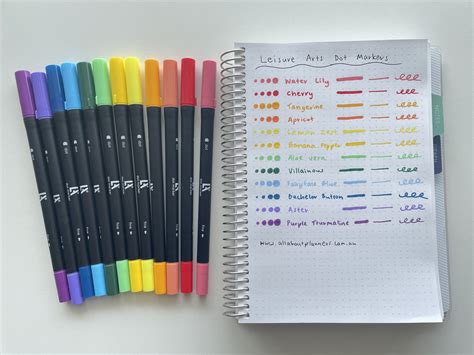 Leisure Arts Dot Markers
Water Lily
Cherry
Tangerine
Apricot
Lemon Zest
Banana Pepper
Aloe vera
Villainous
Fairytale Blue
Bachelor Button
Aster
Purple Tourmaline
www.allaboutplanners.com.au